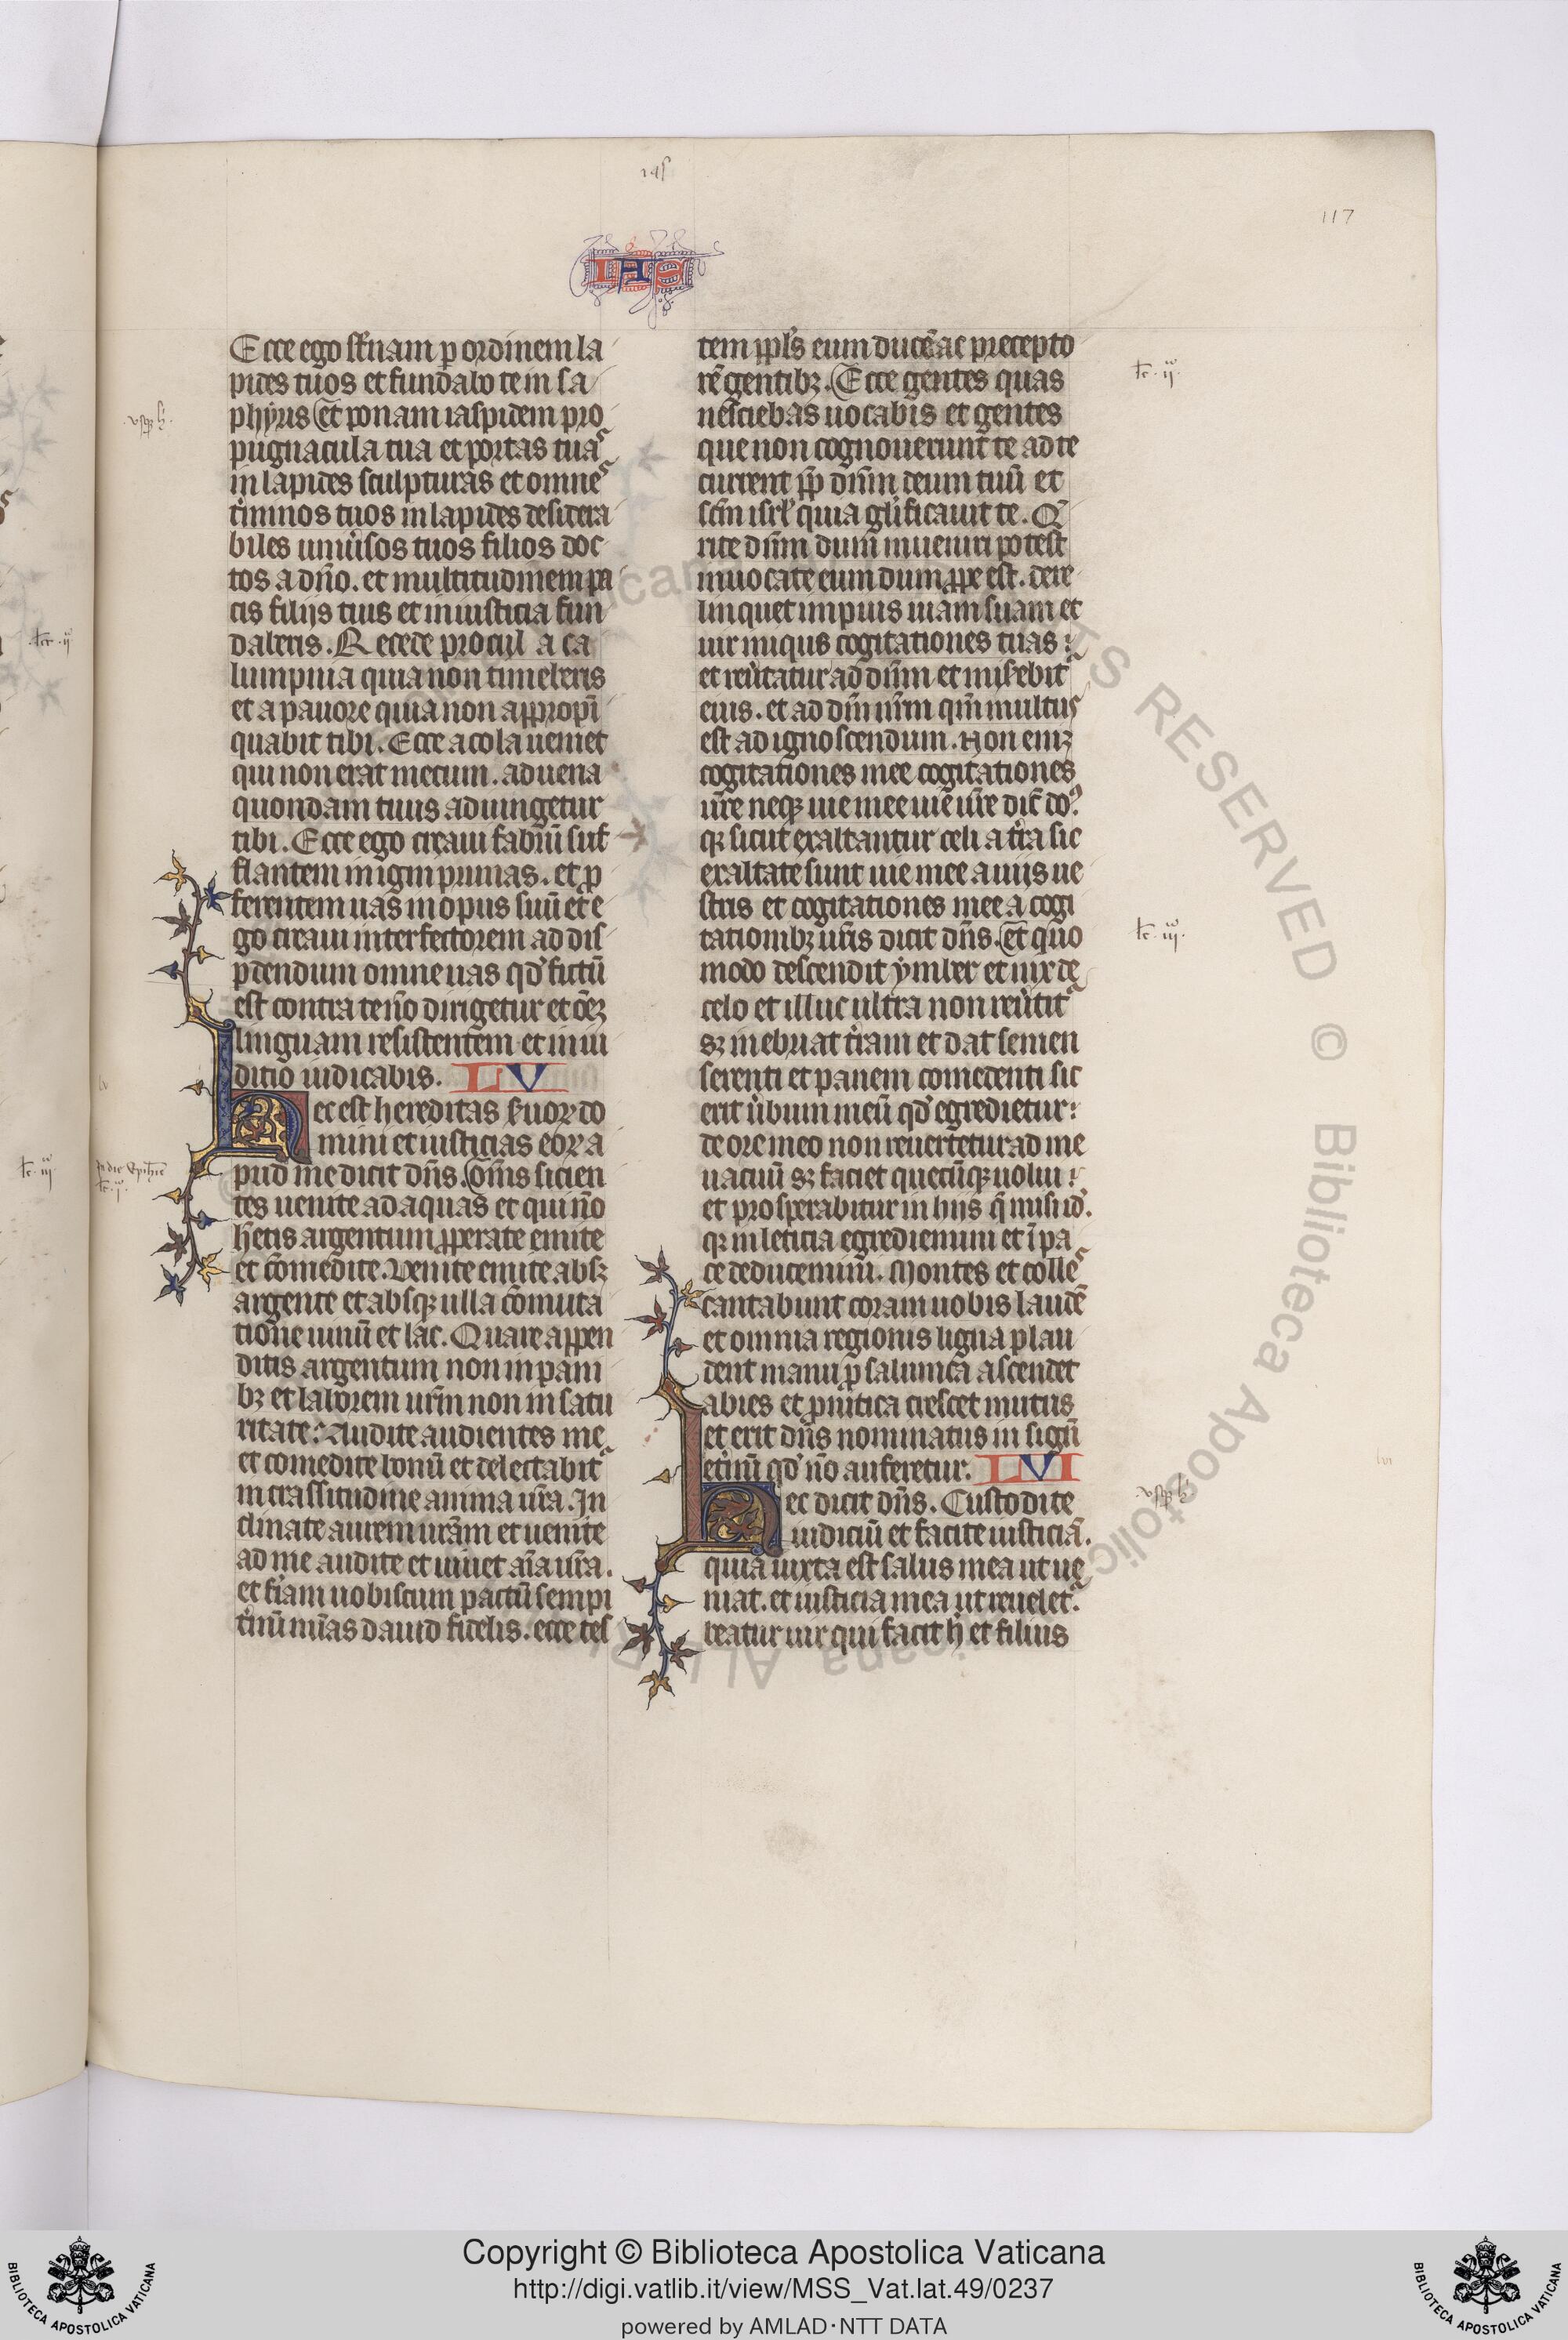 145
117
IAS
Ecce ego st̄nam p̱ ordinem la
pides tuos et fundabo te in sa
phyris Et ponam iaspidem pro
pugnacula tua et portas tuas
in lapides sculpturas et omnes
t̓minos tuos in lapides desidera
biles uniu̓sos tuos filios doc
tos a dn̄o. et multitudinem pa
cis filijs tuis et in iusticia fun
daberis. Recede procul a ca
lumpnia quia non timeberis
et a pauore quia non appropī
quabit tibi. Ecce accola ueniet
qui non erat mecum. aduena
quondam tuus adiungetur
tibi. Ecce ego creaui fabrū suf
flantem in igni prunas. et p̱
ferentem uas in opus suū et e
go creaui interfectorem ad dis
p̱dendum omne uas qd̓ fictū
est contra te nō dirigetur et om̄ēꝫ
linguam resistentem et in iu
ditio iudicabis. LV
Hec est hereditas s̓uoꝝ do
mini et iusticias eoꝝ a
pud me dicit dn̄s. Om̄s sicien
tes uenite ad aquas et qui nō
hētis argentum p̱perate emite
et cōmedite. Venite emite absꝫ
argente et absqꝫ ulla cōmuta
tione uinū et lac. Quare appen
ditis argentum non in pani
bꝫ et laborem ur̄m non in satu
ritate: Audite audientes me
et comedite bonū et delectabit᷑
in crassitudine anima ur̄a. In
clinate aurem uram et uenite
ad me audite et uiuet aīa ur̄a.
et fīam uobiscum pactū sempi
t̓nū mīas dauid fidelis. ecce tes
tem ppl̓s eum ducē ac precepto
rē gentibꝫ. Ecce gentes quas
nesciebas uocabis et gentes
que non cognouerunt te ad te
current pp̄ dn̄m deum tuū et
scm̄ isrl̓ quia gl̓ificauit te. Q
rite dn̄m dum inueniri potest
inuocate eum dum p̱pe est. dere
linquet impius uiam suam et
uir iniqus cogitationes tuas:
et reu̓tatur ad dn̄m et mis̓ebit᷑
eius. et ad dm̄ nr̄m qm̄ multus
est ad ignoscendum. Non eniꝫ
cogitationes mee cogitationes
ur̄e neqꝫ uie mee uie ur̄e dic̄ do᷒
qꝫ sicut exaltantur celi a t̓ra sic
exaltate sunt uie mee a uijs ue
stris et cogitationes mee a cogi
tationibꝫ ur̄is dicit dn̄s. Et quo
modo descendit ymber et nix de
celo et illuc ultra non reu̓tit᷑
sꝫ inebriat t̓ram et dat semen
serenti et panem comedenti sic
erit u̓bum meū qd̓ egredietur:
de ore meo non reuertetur ad me
uacuū sꝫ faciet quecūqꝫ uolui:
et prosperabitur in hijs q̄ misi id̓.
qꝫ in leticia egrediemini et ī pa
ce deducemini. Montes et colles
cantabunt coram uobis laudē
et omnia regionis ligna plau
dent manu p̱ saliunca ascendet
abies et p̱ urtica crescet mirtus
et erit dn̄s nominatus in signū
et̓nū qd̓ nō auferetur. LVI
Hec dicit dn̄s. Custodite
iudiciū et facite iusticiā.
quia iuxta est salus mea ut ue
niat. et iusticia mea ut reuelet᷑.
beatur uir qui facit h̓ et filius
lv
lvi
Copyright © Biblioteca Apostolica Vaticana
http://digi.vatlib.it/view/MSS_Vat.lat.49/0237
powered by AMLAD·NTT DATA